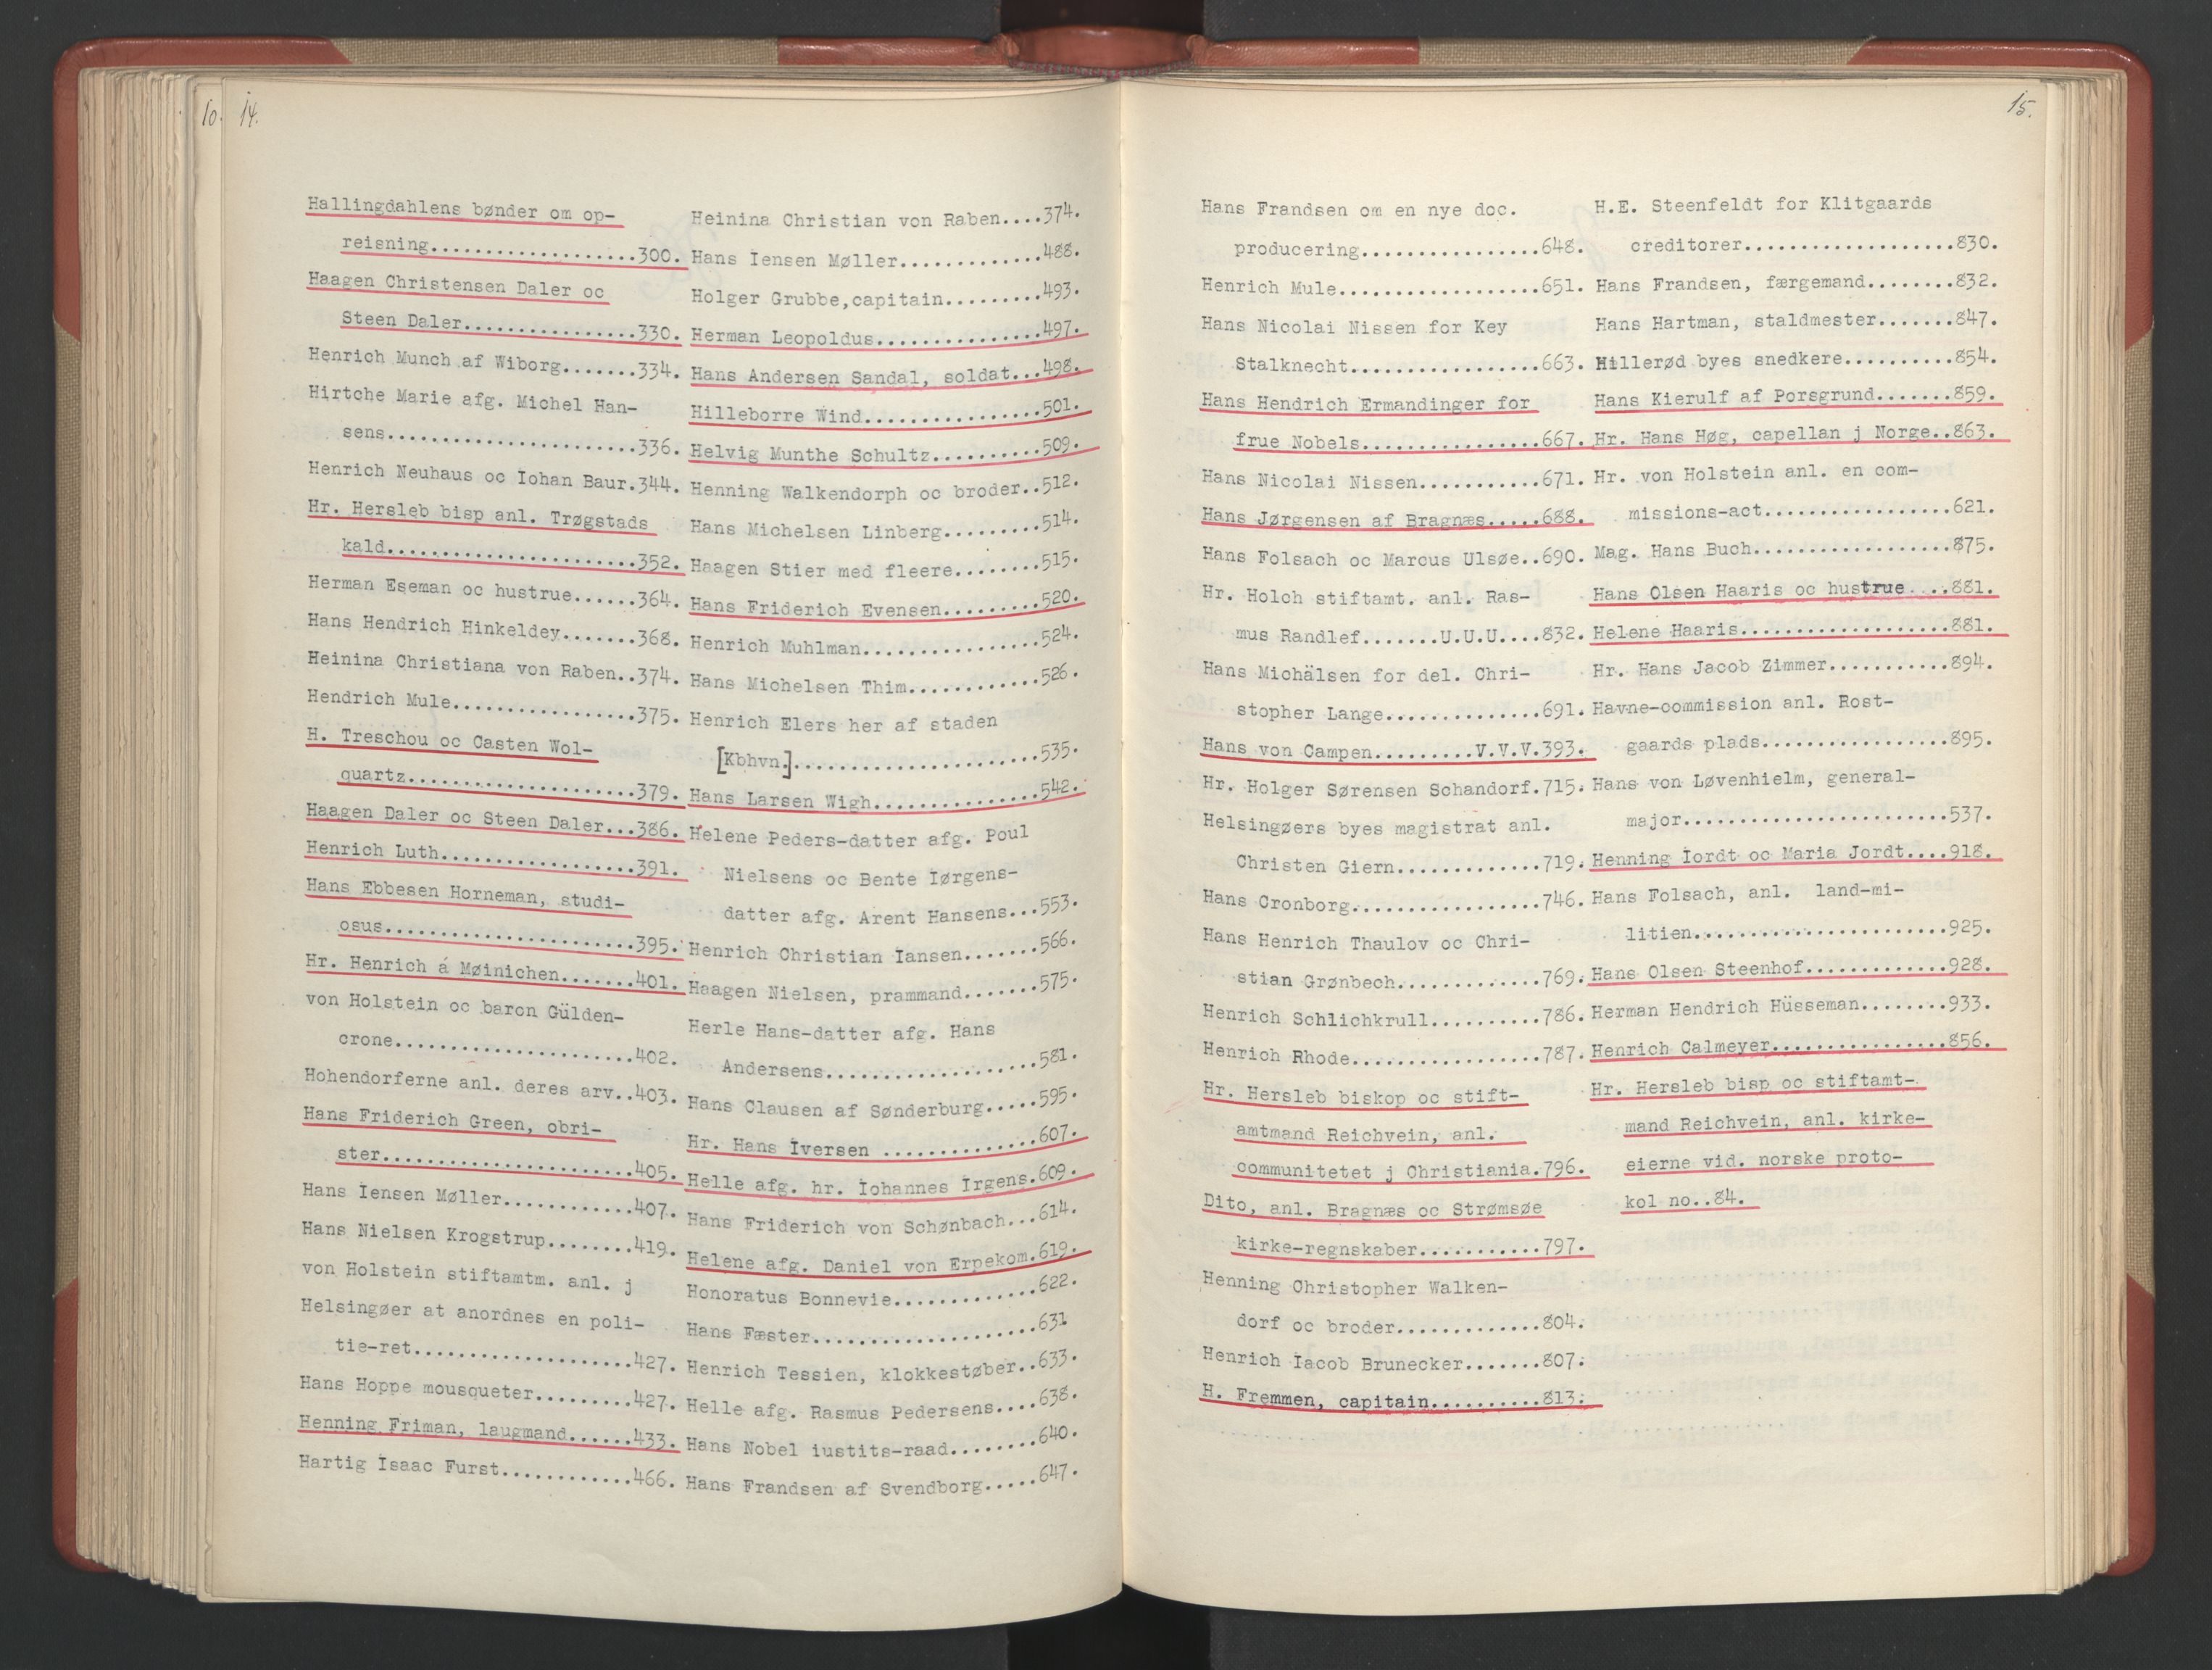 10.
14.
Hallingdahlens bønder om op-
reisning...................300.
Haagen Christensen Daler oc
Steen Daler................330.
Henrich Munch af Wiborg.......334.
Hirtche Marie afg. Michel Han-
sens.......................336.
Henrich Neuhaus oc Iohan Baur.344.
Hr. Hersleb bisp anl. Trøgstads
kald.......................352.
Herman Eseman oc hustrue......364.
Hans Hendrich Hinkeldey.......368.
Heinina Christiana von Raben..374.
Hendrich Mule.................375.
H. Treschou oc Casten Wol-
quartz.....................379.
Haagen Daler oc Steen Daler...386.
Henrich Luth..................391.
Hans Ebbesen Horneman, studi-
osus.......................395.
Hr. Henrich á Møinichen.......401.
von Holstein oc baron Gülden-
crone......................402.
Hohendorferne anl. deres arv..403.
Hans Friderich Green, obri-
ster.......................405.
Hans Iensen Møller............407.
Hans Nielsen Krogstrup........419.
von Holstein stiftamtm. anl. j
Helsingøer at anordnes en poli-
tie-ret....................427.
Hans Hoppe mousqueter.........427.
Henning Friman, laugmand......433.
Hartig Isaac Furst............466.
Heinina Christian von Raben....374.
Hans Iensen Møller.............488.
Holger Grubbe,capitain.........493.
Herman Leopoldus...............497.
Hans Andersen Sandal, soldat...498.
Hilleborre Wind................501.
Helvig Munthe Schultz..........509.
Henning Walkendorph oc broder..512.
Hans Michelsen Linberg.........514.
Haagen Stier med fleere........515.
Hans Friderich Evensen.........520.
Henrich Muhlman................524.
Hans Michelsen Thim............526.
Henrich Elers her af staden
[Kbhvn.].......................535.
Hans Larsen Wigh...............542.
Helene Peders-datter afg. Poul
Nielsens oc Bente Iørgens-
datter afg. Arent Hansens...553.
Henrich Christian Iansen.......566.
Haagen Nielsen, prammand.......575.
Herle Hans-datter afg. Hans
Andersens...................581.
Hans Clausen af Sønderburg.....595.
Hr. Hans Iversen ..............607.
Helle afg. hr. Iohannes Irgens.609.
Hans Friderich von Schønbach...614.
Helene afg. Daniel von Erpekom.619.
Honoratus Bonnevie.............622.
Hans Fæster....................631
Henrich Tessien, klokkestøber..633.
Helle afg. Rasmus Pedersens....638.
Hans Nobel iustits-raad........640.
Hans Frandsen af Svendborg.....647.
15.
Hans Frandsen om en nye doc.
producering................648.
Henrich Mule..................651.
Hans Nicolai Nissen for Key
Stalknecht.................663.
Hans Hendrich Ermandinger for
frue Nobels................667.
Hans Nicolai Nissen...........671.
Hans Jørgensen af Bragnæs.....688.
Hans Folsach oc Marcus Ulsøe..690.
Hr. Holch stiftamt. anl. Ras-
mus Randlef.......U.U.U....832.
Hans Michälsen for del. Chri-
stopher Lange..............691.
Hans von Campen.........V.V.V.393.
Hr. Holger Sørensen Schandorf.715.
Helsingøers byes magistrat anl.
Christen Giern.............719.
Hans Cronborg.................746.
Hans Henrich Thaulov oc Chri-
stian Grønbech.............769.
Henrich Schlichkrull..........786.
Henrich Rhode.................787.
Hr. Hersleb biskop oc stift-
amtmand Reichvein, anl.
communitetet j Christiania.796.
Dito, anl. Bragnæs oc Strømsøe
kirke-regnskaber...........797.
Henning Christopher Walken-
dorf oc broder.............804.
Henrich Iacob Brunecker.......807.
H. Fremmen, capitain..........813.
H.E. Steenfeldt for Klitgaards
creditorer...................830.
Hans Frandsen, færgemand........832.
Hans Hartman, staldmester.......847.
Hillerød byes snedkere..........854.
Hans Kierulf af Porsgrund.......859.
Hr. Hans Høg, capellan j Norge..863.
Hr. von Holstein anl. en com-
missions-act.................621.
Mag. Hans Buch..................875.
Hans Olsen Haaris oc hustrue....881.
Helene Haaris...................881.
Hr. Hans Jacob Zimmer...........894.
Havne-commission anl. Rost-
gaards plads.................895.
Hans von Løvenhielm, general-
major........................537.
Henning Iordt oc Maria Jordt....918.
Hans Folsach, anl. land-mi-
litien.......................925.
Hans Olsen Steenhof.............928.
Herman Hendrich Hüsseman........933.
Henrich Calmeyer................856.
Hr. Hersleb bisp oc stiftamt-
mand Reichvein, anl. kirke-
eierne vid. norske proto-
kol no..84.